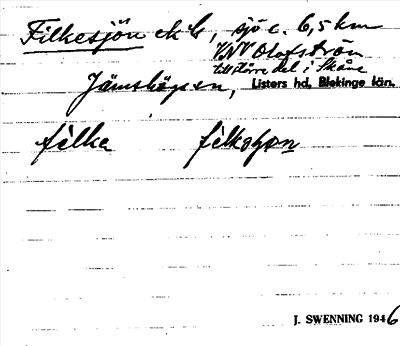 Filkesjön ek bl, sjö c. 6,5 km
VNV Olofström
till större del i Skåne
Jämshögs sn, Listers hd, Blekinge län.
filke filkeshøn
J. SWENNING 1946